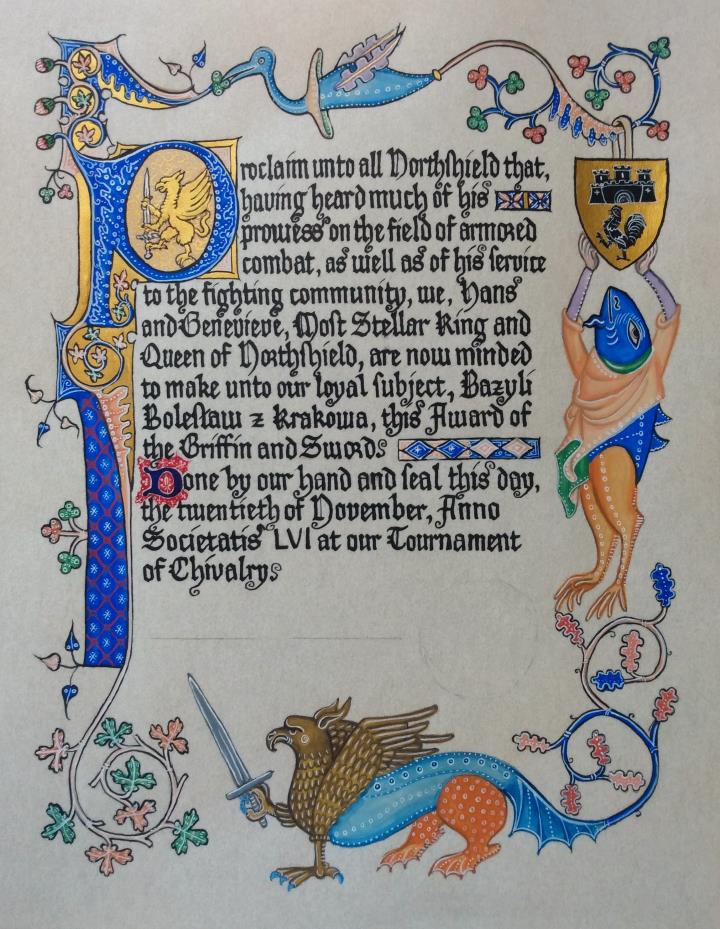 Proclaim unto all Northshield that,
having heard much of his
prowess on the field of armored
combat, as well as of his service
to the fighting community, we, Hans
and Genevieve, Most Stellar King and
Queen of Northshield, are now minded
to make unto our loyal subject, Bazyli
Bolesław z Krakowa, this Award of
the Griffin and Swords
Done by our hand and seal this day,
the twentieth of November, Anno
Societatis LVI at our Tournament
of Chivalry